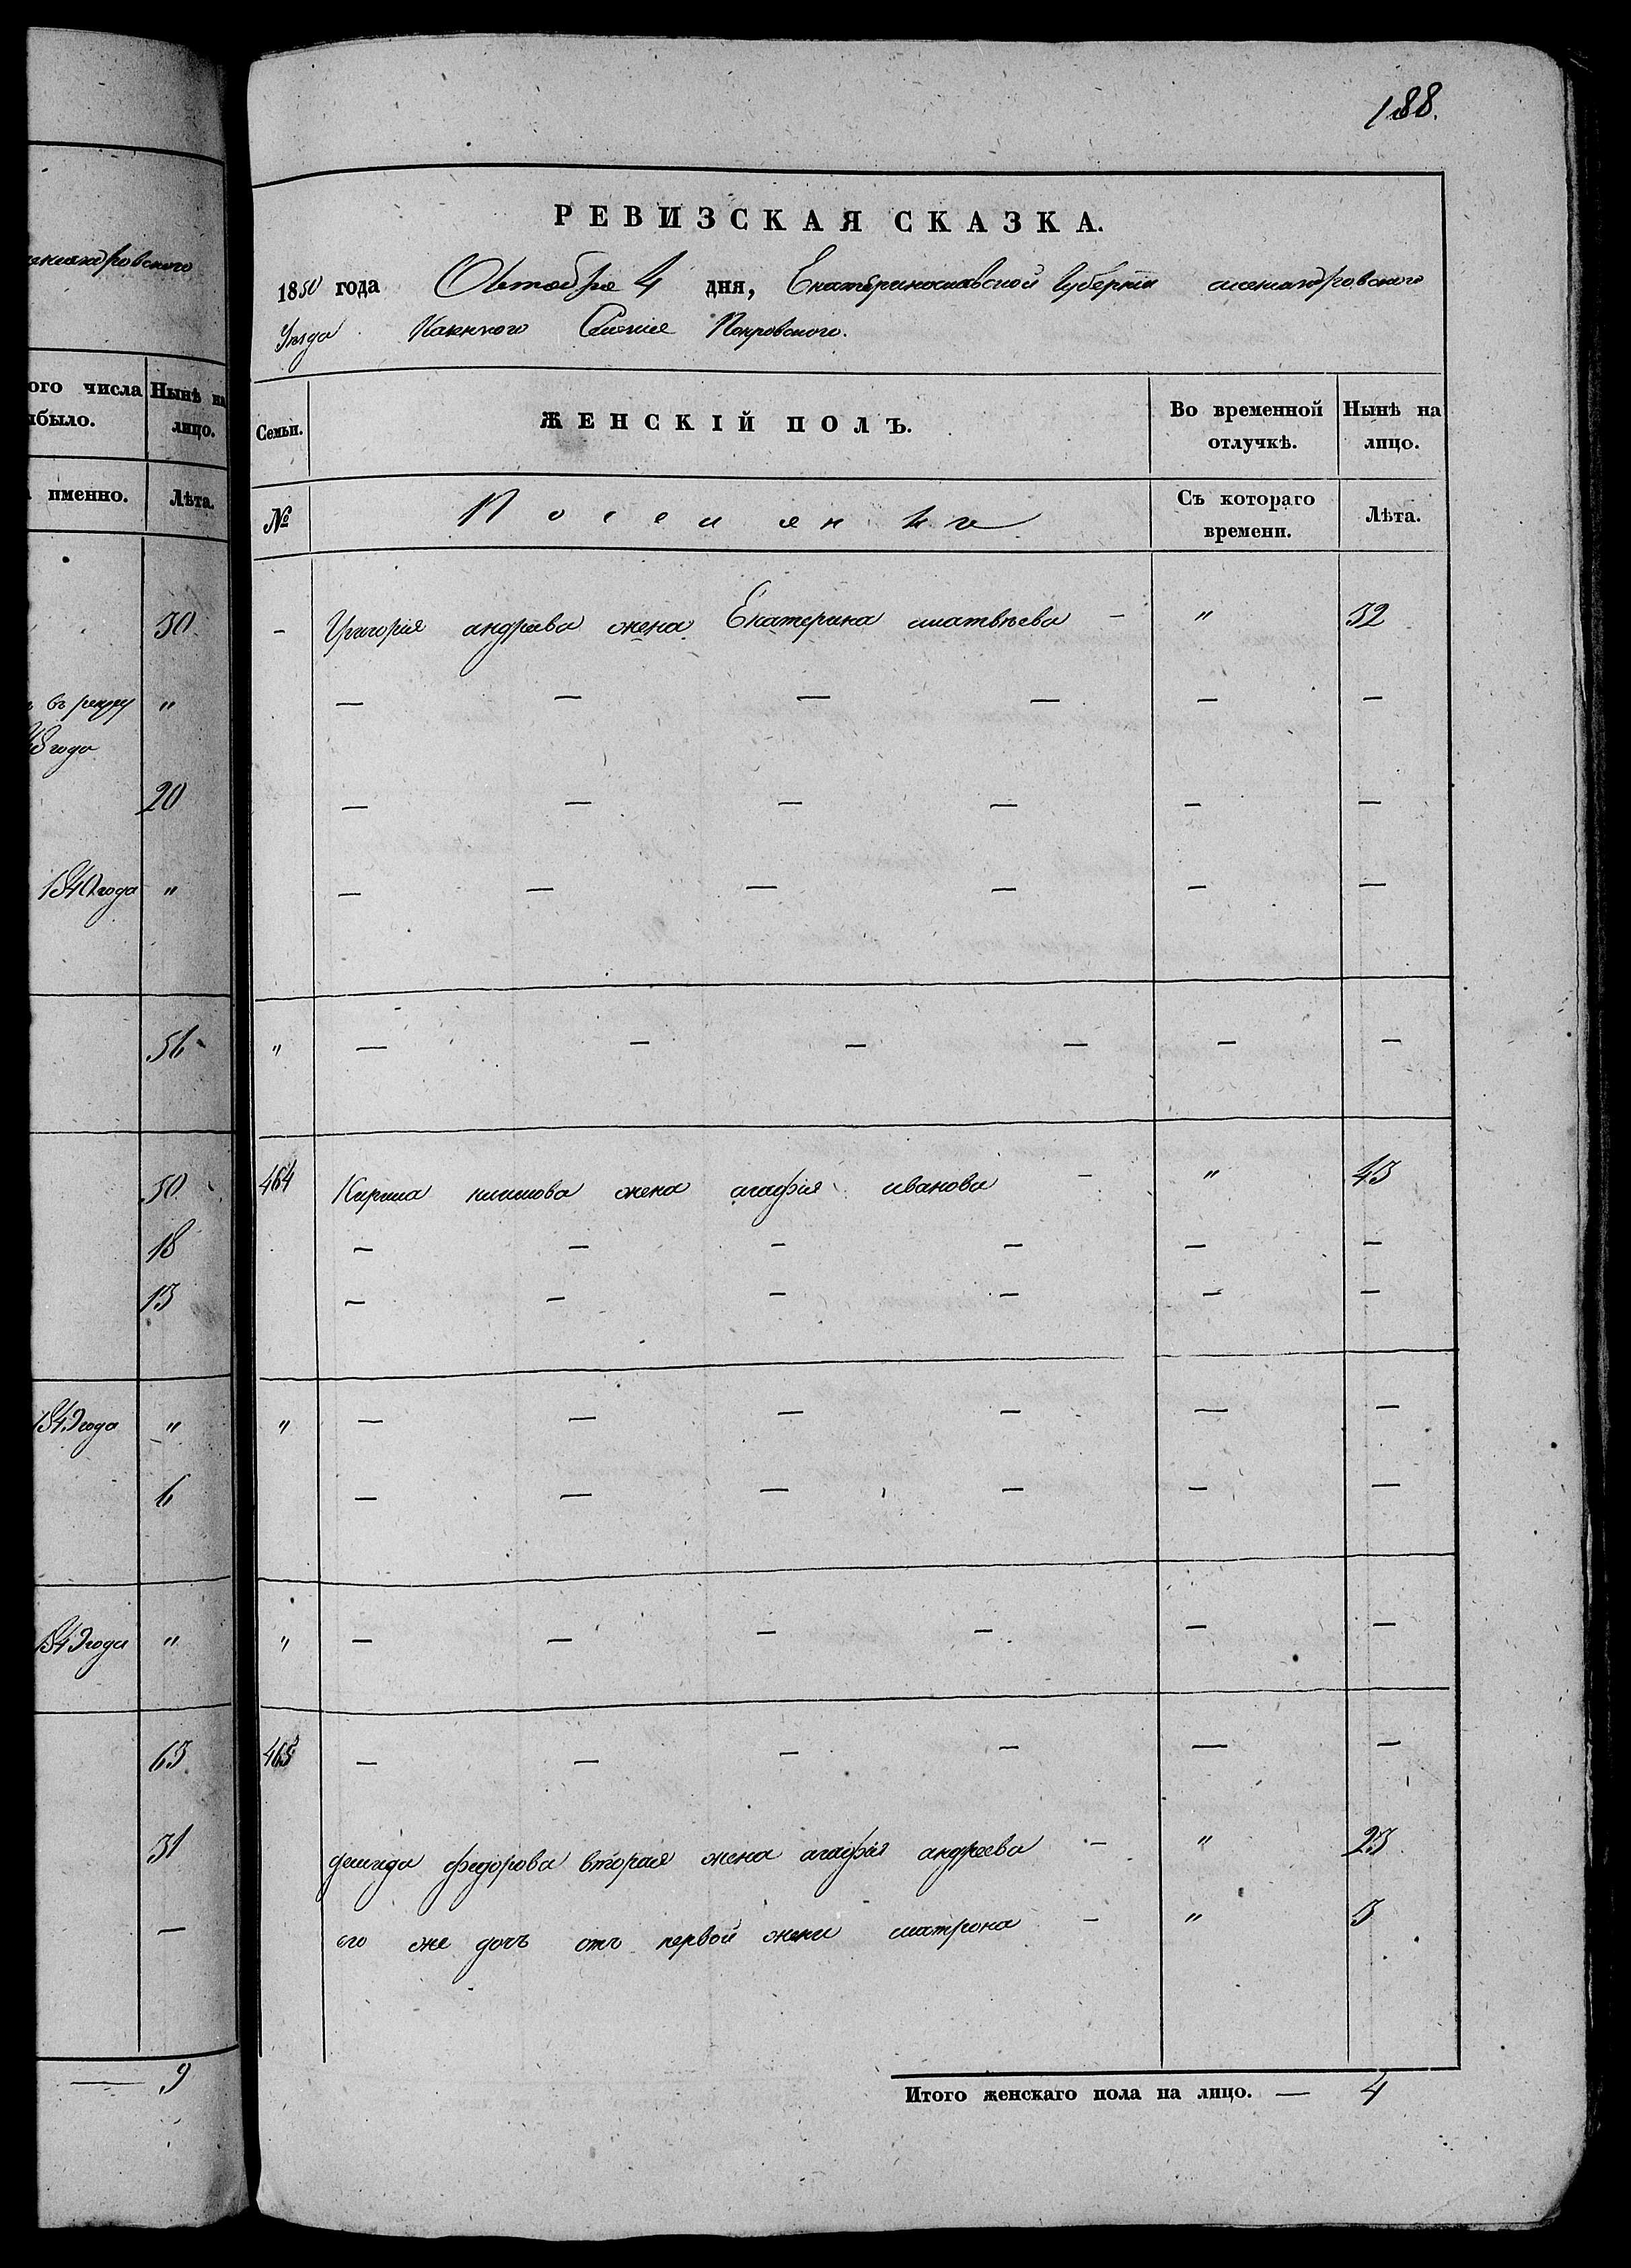 188.
РЕВИЗСКАЯ СКАЗКА.
1850 года Октября 4 дня, Екатеринославской Губерніи александровского
Уѣзда Казенного Селенія Покровского.
Семьи. ЖЕНСКІЙ ПОЛЪ. Во временной отлучкѣ. Нынѣ на лицо.
№ Поселянъ Съ котораго времени. Лѣта.
– Григорія андреева жена Екатерина матвѣева – " 32
— — — — — —
— — — — — —
— — — — — —
" — — — — — —
464 Кирила климова жена агафія иванова – " 45
— — — — — —
— — — — — —
" — — — — — —
— — — — — —
" — — — — — —
465 — — — — — —
демида федорова вторая жена агафія андреева – " 25
его же дочь отъ первой жени матрона – " 5
Итого женскаго пола на лицо. — 4
ого числа Нынѣ на
лицо.
именно. Лѣта.
30
въ рекру "
20
1840 года "
56
50
18
15
1849 года "
6
1849 года "
65
31
—
— 9